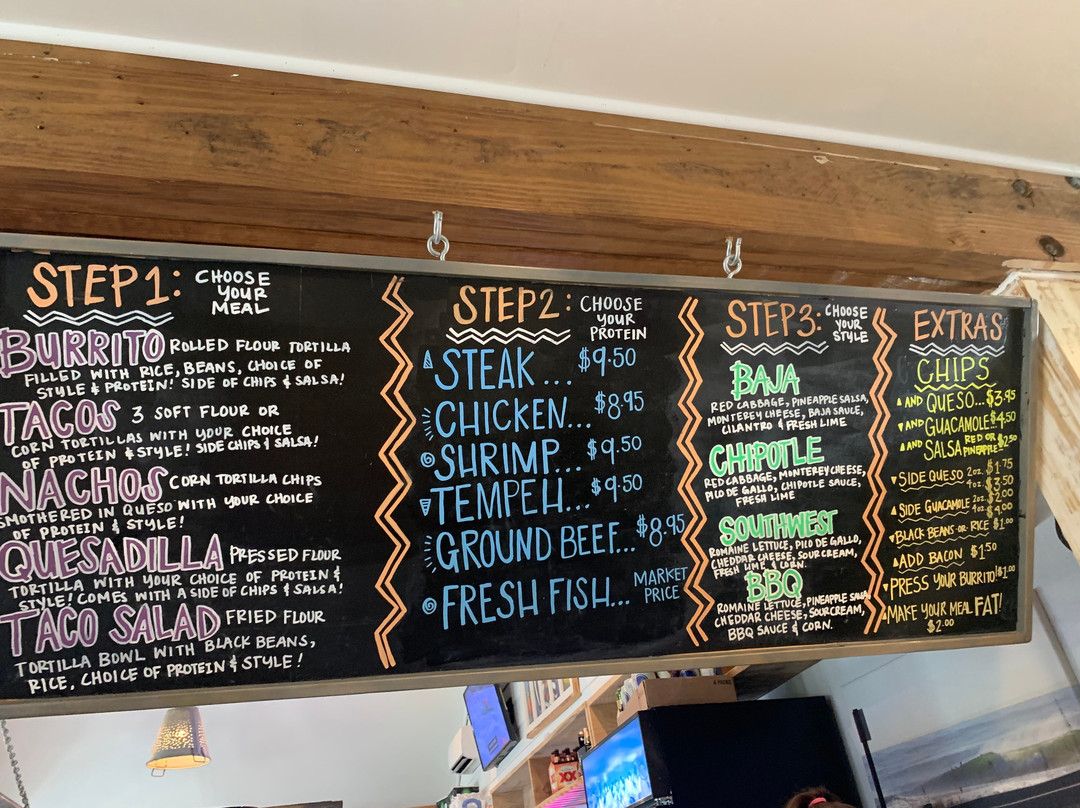 STEP 1: CHOOSE
YOUR
MEAL
BURRITO ROLLED FLOUR TORTILLA
FILLED WITH RICE, BEANS, CHOICE OF
STYLE & PROTEIN! SIDE OF CHIPS & SALSA!
TACOS 3 SOFT FLOUR OR
CORN TORTILLAS WITH YOUR CHOICE
OF PROTEIN & STYLE! SIDE CHIPS & SALSA!
NACHOS CORN TORTILLA CHIPS
SMOTHERED IN QUESO WITH YOUR CHOICE
OF PROTEIN & STYLE!
QUESADILLA PRESSED FLOUR
TORTILLA WITH YOUR CHOICE OF PROTEIN &
STYLE! COMES WITH A SIDE OF CHIPS & SALSA!
TACO SALAD FRIED FLOUR
TORTILLA BOWL WITH BLACK BEANS,
RICE, CHOICE OF PROTEIN & STYLE!
STEP 2: CHOOSE
YOUR
PROTEIN
STEAK... $9.50
CHICKEN... $8.95
SHRIMP... $9.50
TEMPEH... $9.50
GROUND BEEF... $8.95
FRESH FISH... MARKET
PRICE
STEP 3: CHOOSE
YOUR
STYLE
BAJA
RED CABBAGE, PINEAPPLE SALSA,
MONTEREY CHEESE, BAJA SAUCE,
CILANTRO & FRESH LIME
CHIPOTLE
RED CABBAGE, MONTEREY CHEESE,
PICO DE GALLO, CHIPOTLE SAUCE,
FRESH LIME
SOUTHWEST
ROMAINE LETTUCE, PICO DE GALLO,
CHEDDAR CHEESE, SOUR CREAM,
FRESH LIME & CORN.
BBQ
ROMAINE LETTUCE, PINEAPPLE SALSA
CHEDDAR CHEESE, SOUR CREAM,
BBQ SAUCE & CORN.
EXTRAS
CHIPS
AND QUESO... $3.95
AND GUACAMOLE $4.50
AND SALSA RED OR PINEAPPLE $2.50
SIDE QUESO 2oz. $1.75
4oz. $3.50
SIDE GUACAMOLE 2oz. $2.00
4oz. $4.00
BLACK BEANS OR RICE $1.00
ADD BACON $1.50
PRESS YOUR BURRITO! $1.00
MAKE YOUR MEAL FAT!
$2.00
XX